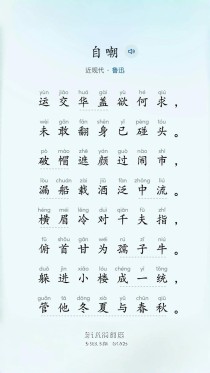 自嘲
近现代·鲁迅
yùn jiāo huá gài yù hé qiú
运交华盖欲何求，
wèi gǎn fān shēn yǐ pèng tóu
未敢翻身已碰头。
pò mào zhē yán guò nào shì
破帽遮颜过闹市，
lòu chuán zài jiǔ fàn zhōng liú
漏船载酒泛中流。
héng méi lěng duì qiān fū zhǐ
横眉冷对千夫指，
fǔ shǒu gān wéi rú zǐ niú
俯首甘为孺子牛。
duǒ jìn xiǎo lóu chéng yì tǒng
躲进小楼成一统，
guǎn tā dōng xià yǔ chūn qiū
管他冬夏与春秋。